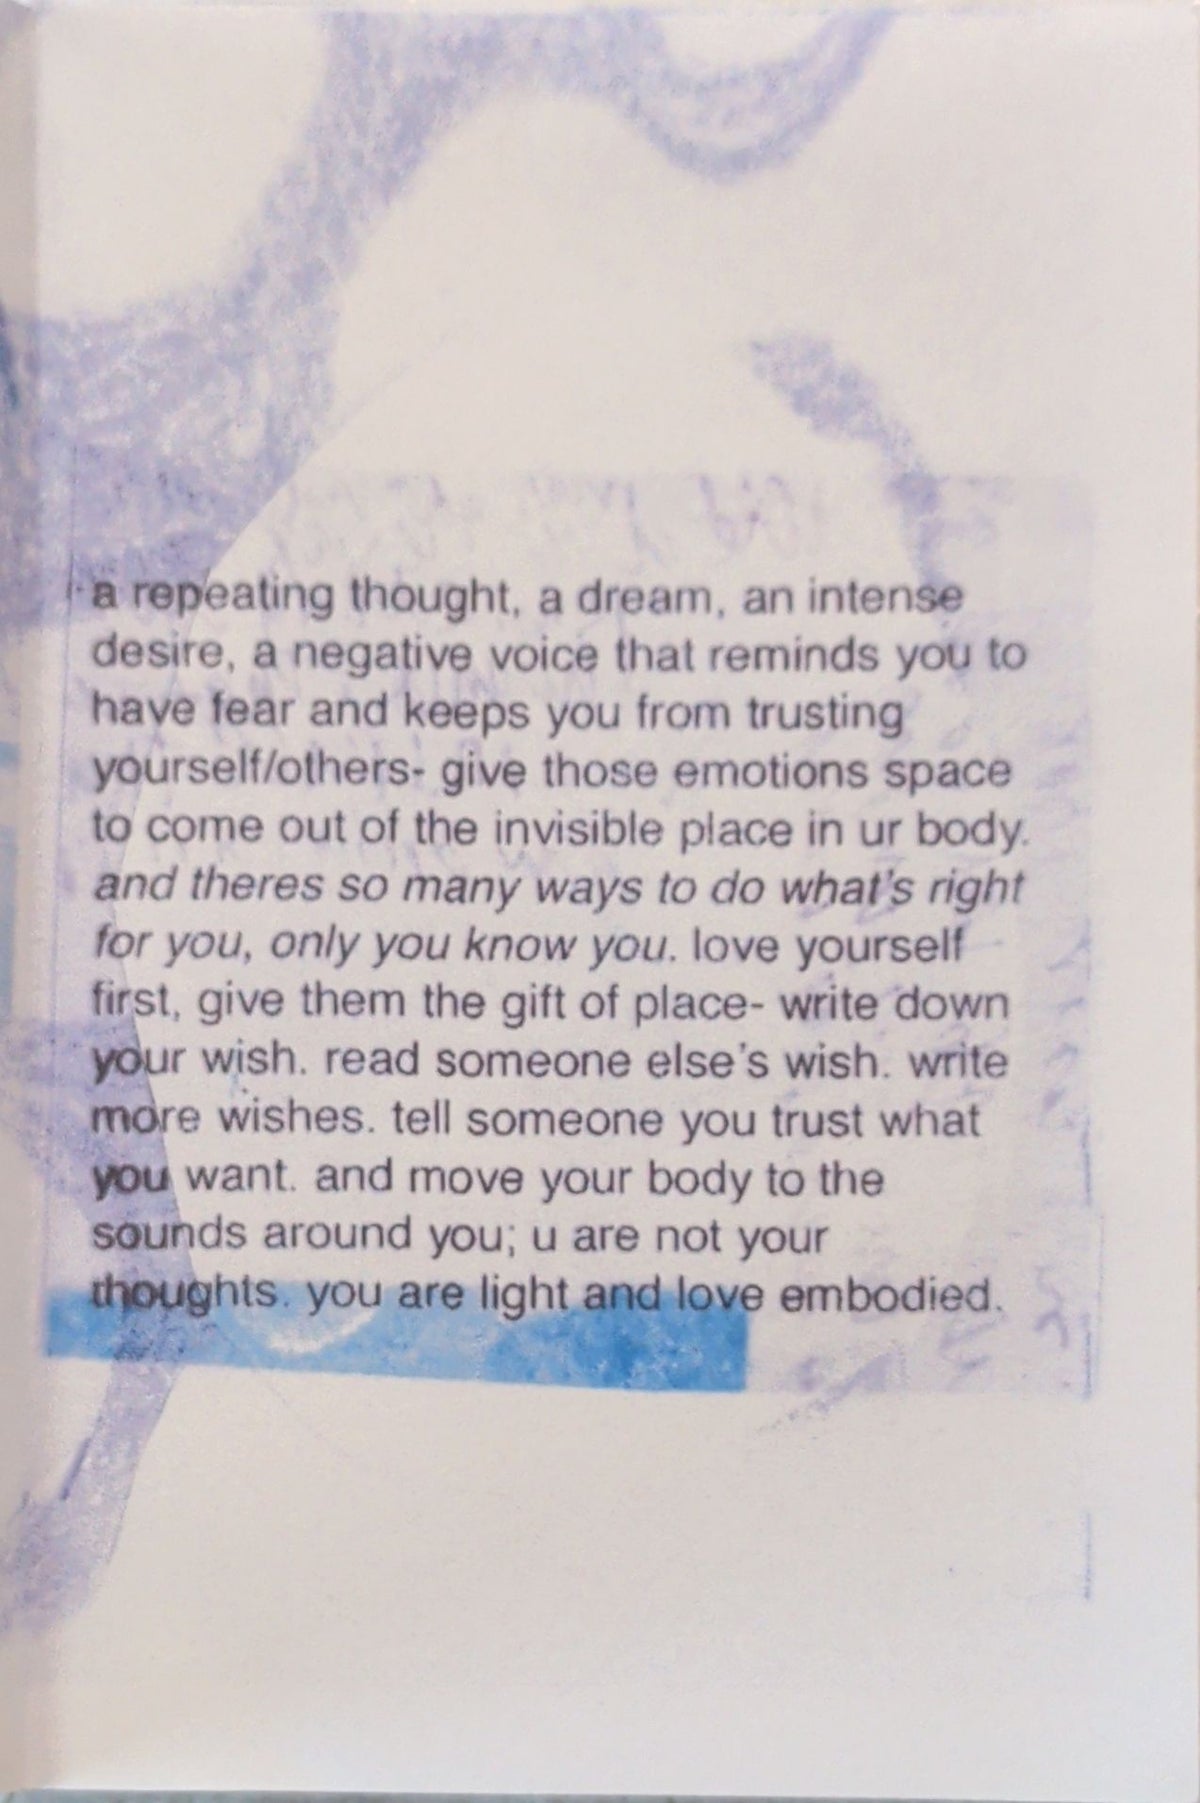 a repeating thought, a dream, an intense
desire, a negative voice that reminds you to
have fear and keeps you from trusting
yourself/others- give those emotions space
to come out of the invisible place in ur body.
and theres so many ways to do what's right
for you, only you know you. love yourself
first, give them the gift of place- write down
your wish. read someone else's wish. write
more wishes. tell someone you trust what
you want. and move your body to the
sounds around you; u are not your
thoughts. you are light and love embodied.